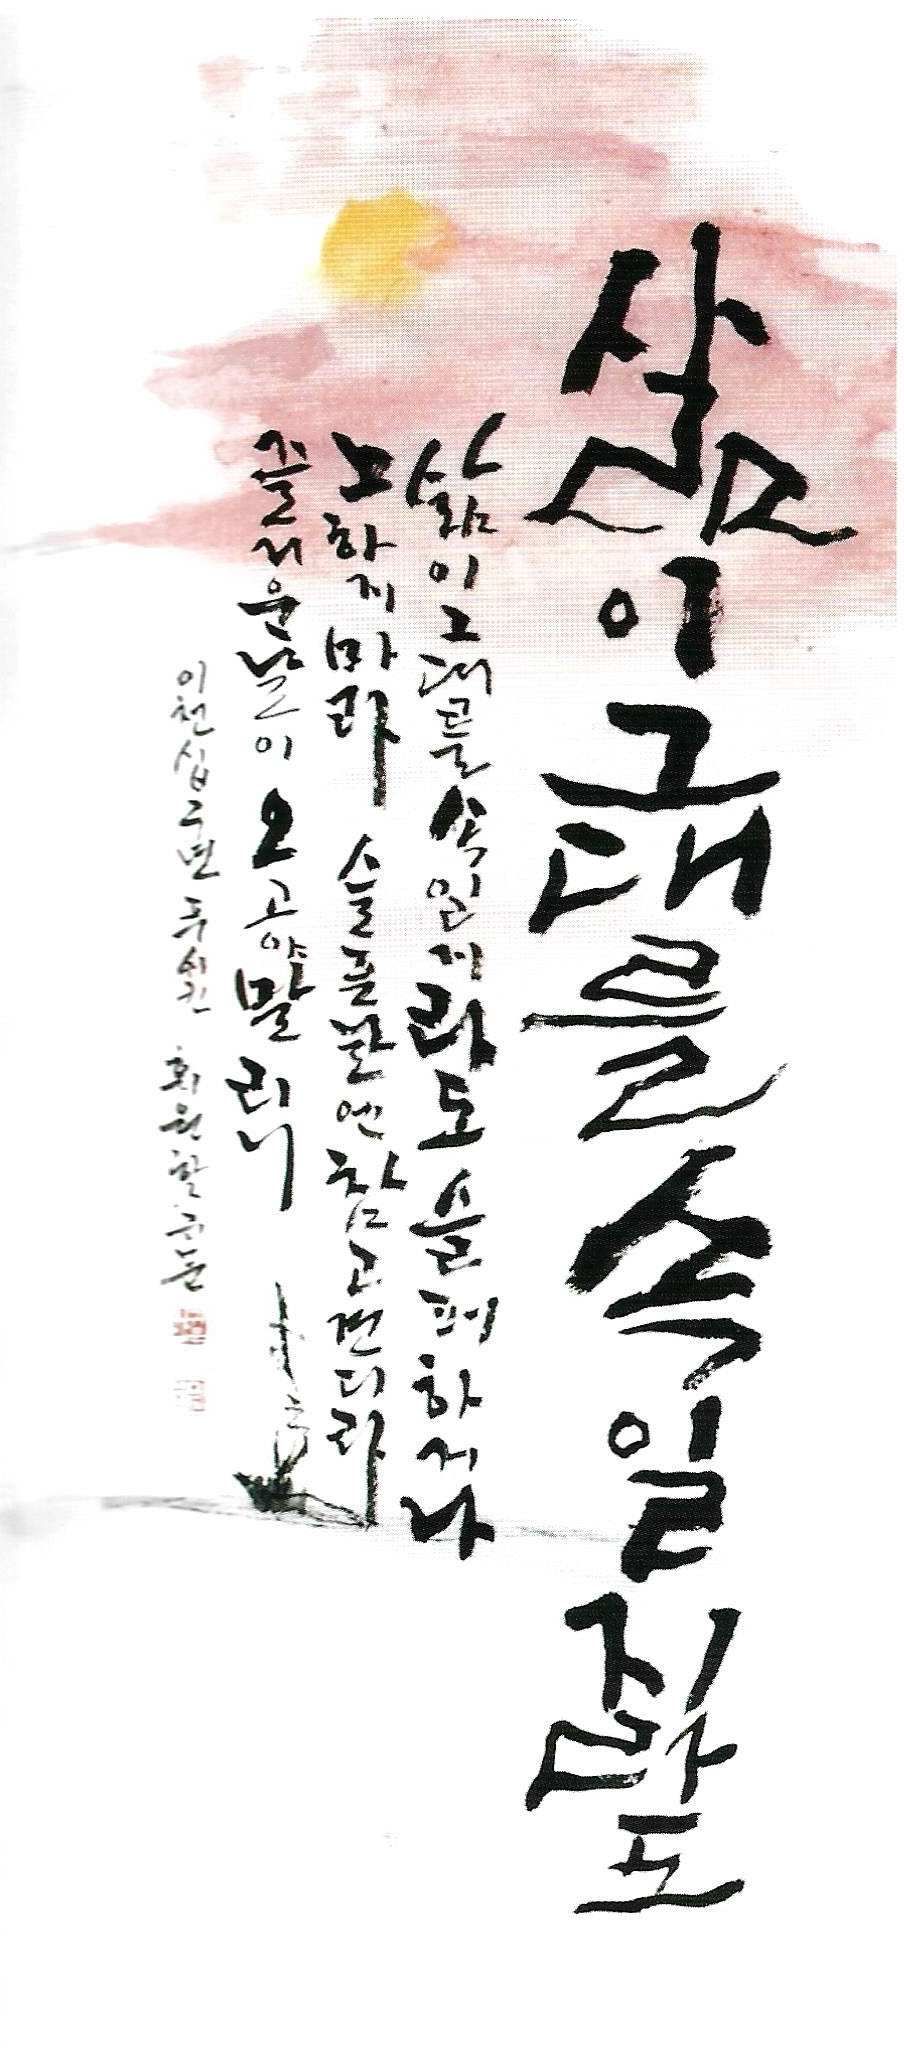 삶이그대를속일지라도
삶이그대를속일지라도슬퍼하거나
노하지마라 슬픈날엔참고견디라
즐거운날이오고야말리니
이천십구년푸쉬킨